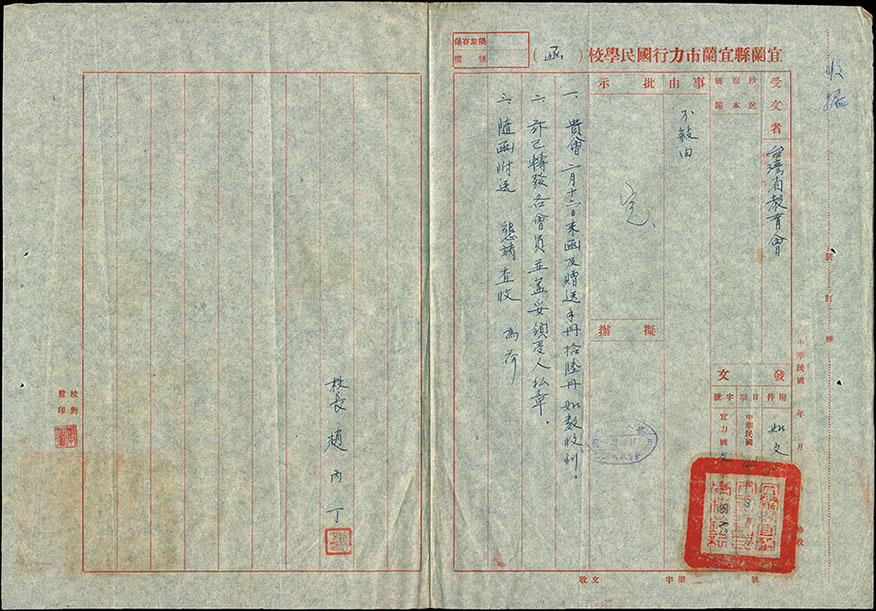 收據
宜蘭縣宜蘭市力行國民學校（函）
保存期限
檔號
受文者
台灣省教育會
抄送
副本
事由
不敍由
批示
擬辦
發文
附件
如文
日期
中華民國
字號
宜力國文
一、貴會二月十六日來函及贈送手冊拾陸冊如数收到。
二、亦已轉發各會員並蓋妥領受人私章。
三、隨函附送 懇請查收 為荷
校長 趙丙丁
校對
監印
中華民國 年 月
裝訂線
收文 字第 號